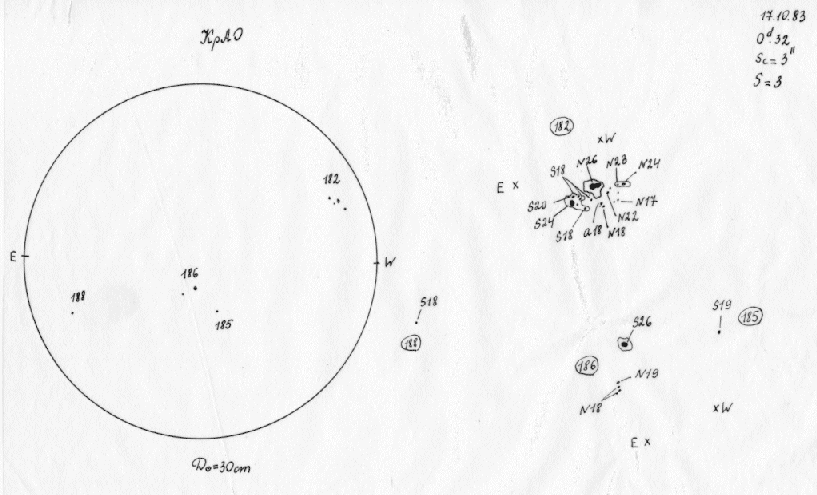 КрАО
17.10.83
0ᵈ.32
Sc = 3"
S = 3
182
E
W
186
188
185
D₀=30cm
182
x W
E x
S18
N26
N23
N24
S20
S24
S18
a18
N18
N22
N17
S18
188
S26
186
N19
N18
S19
185
x W
E x